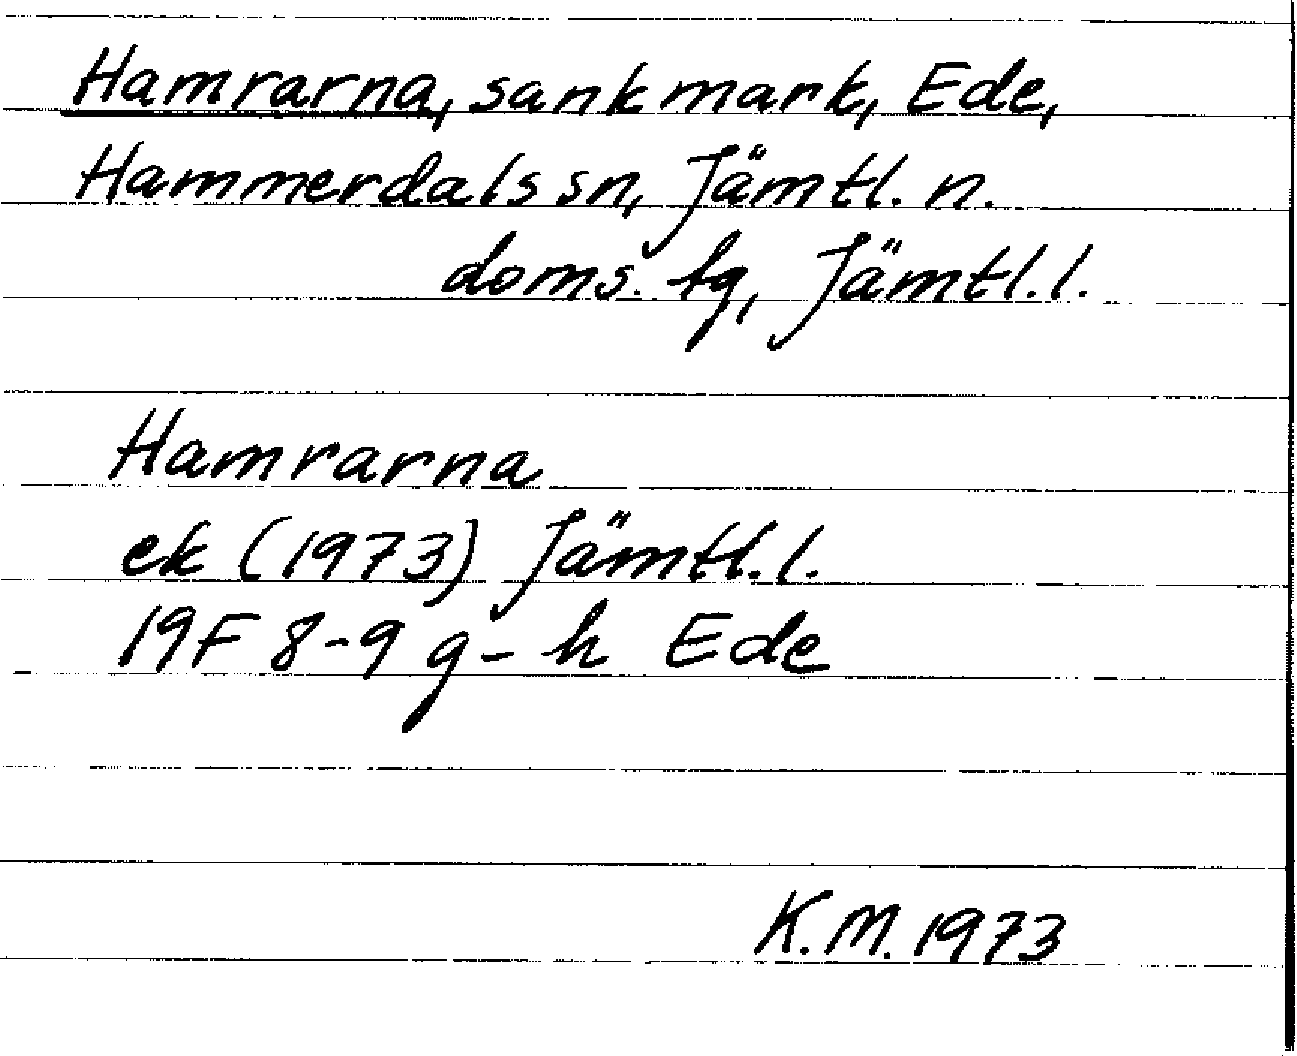 Hamrarna, sankmark, Ede,
Hammerdals sn, Jämtl. n.
doms. tg, Jämtl. l.
Hamrarna
ek (1973) Jämtl. l.
19F 8-9 g-h Ede
K. M. 1973